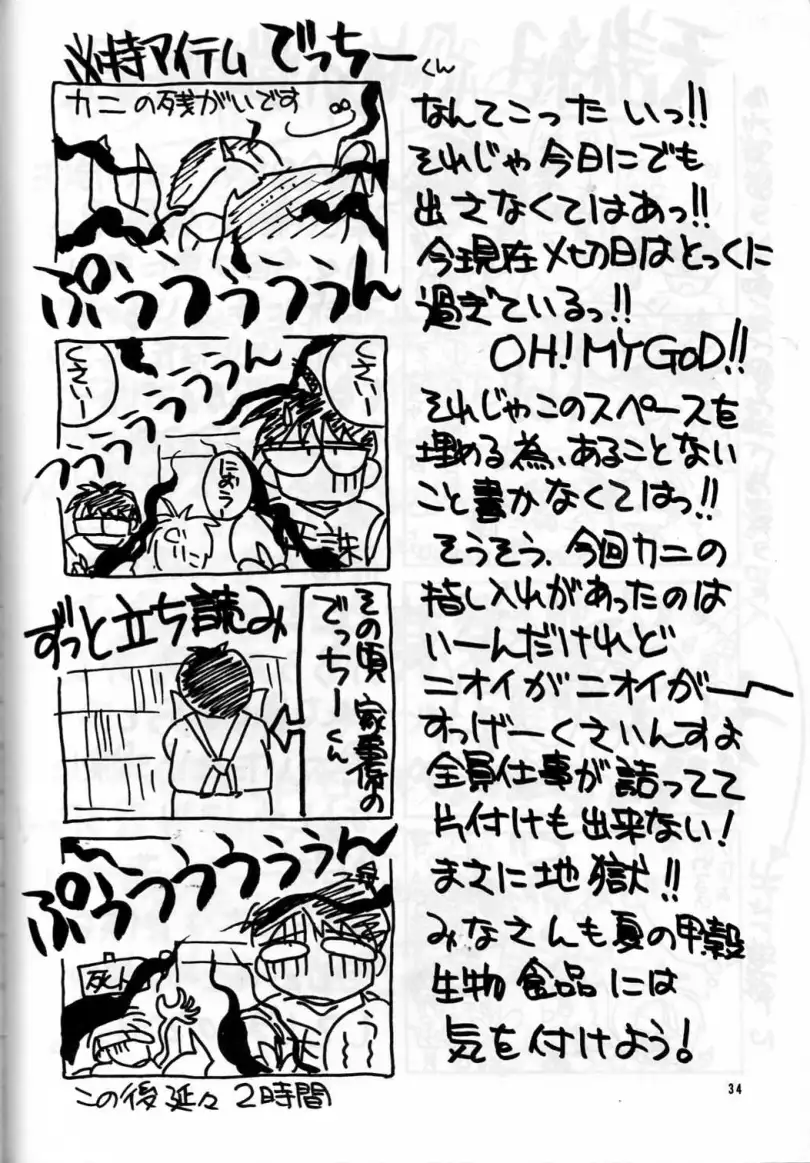 必特アイテム でっちーくん
カニの残がいです
ぷぅつぅぅぅん
くさいー
くさいー
つぅぅぅぅぅん
におうー
誅
その頃 家事係の
でっちーくん
ずっと立ち読み
ぷぅつぅぅぅぅん
死人
この後延々2時間
なんてこったいっ!!
それじゃ今日にでも
出さなくてはあっ!!
今現在〆切日はとっくに
過ぎているっ!!
OH! MY GOD!!
それじゃこのスペースを
埋める為、あることない
こと書かなくてはっ!!
そうそう、今回カニの
指し入れがあったのは
いーんだけれど
ニオイがニオイがー
すっげーくさいんすよ
全員仕事が詰ってて
片付けも出来ない!
まさに地獄!!
みなさんも夏の甲殻
生物食品には
気を付けよう!
34